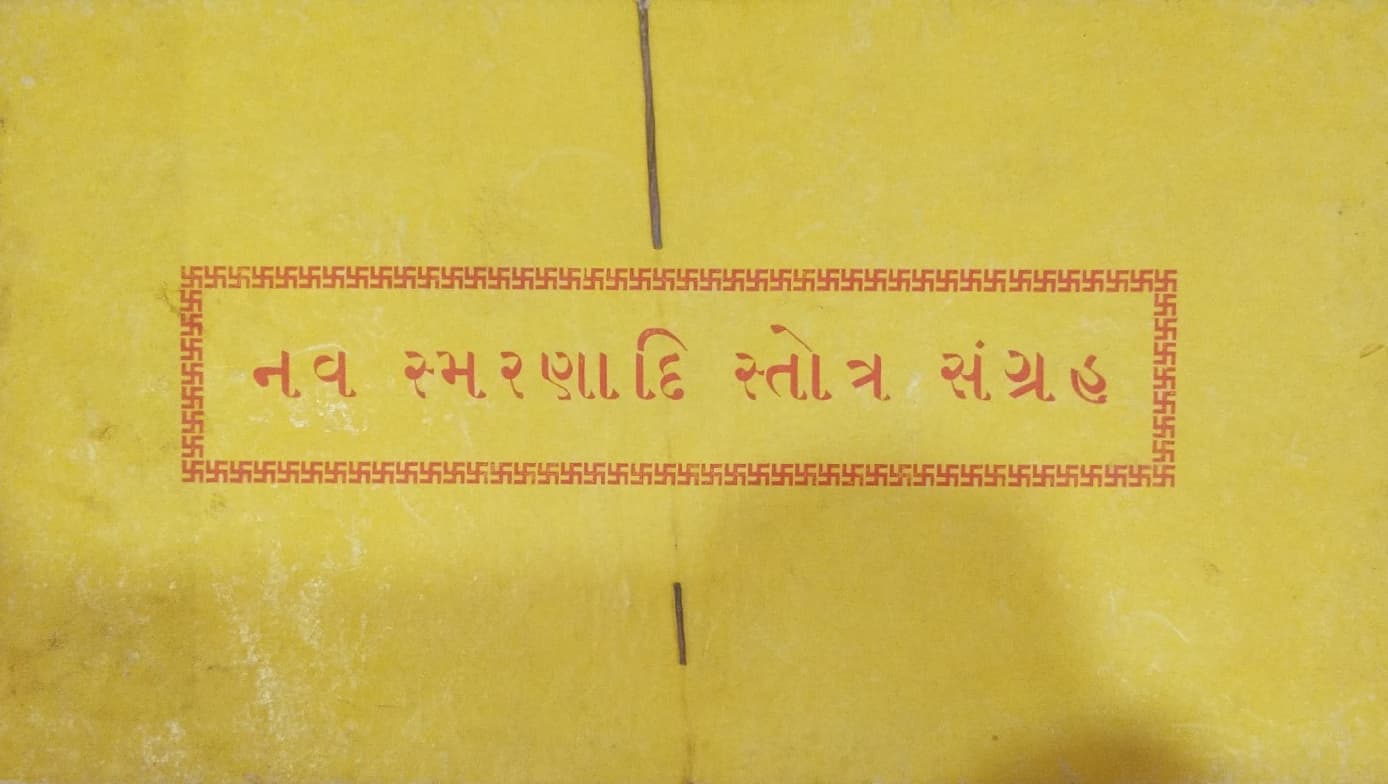 નવ સ્મરણાદિ સ્તોત્ર સંગ્રહ